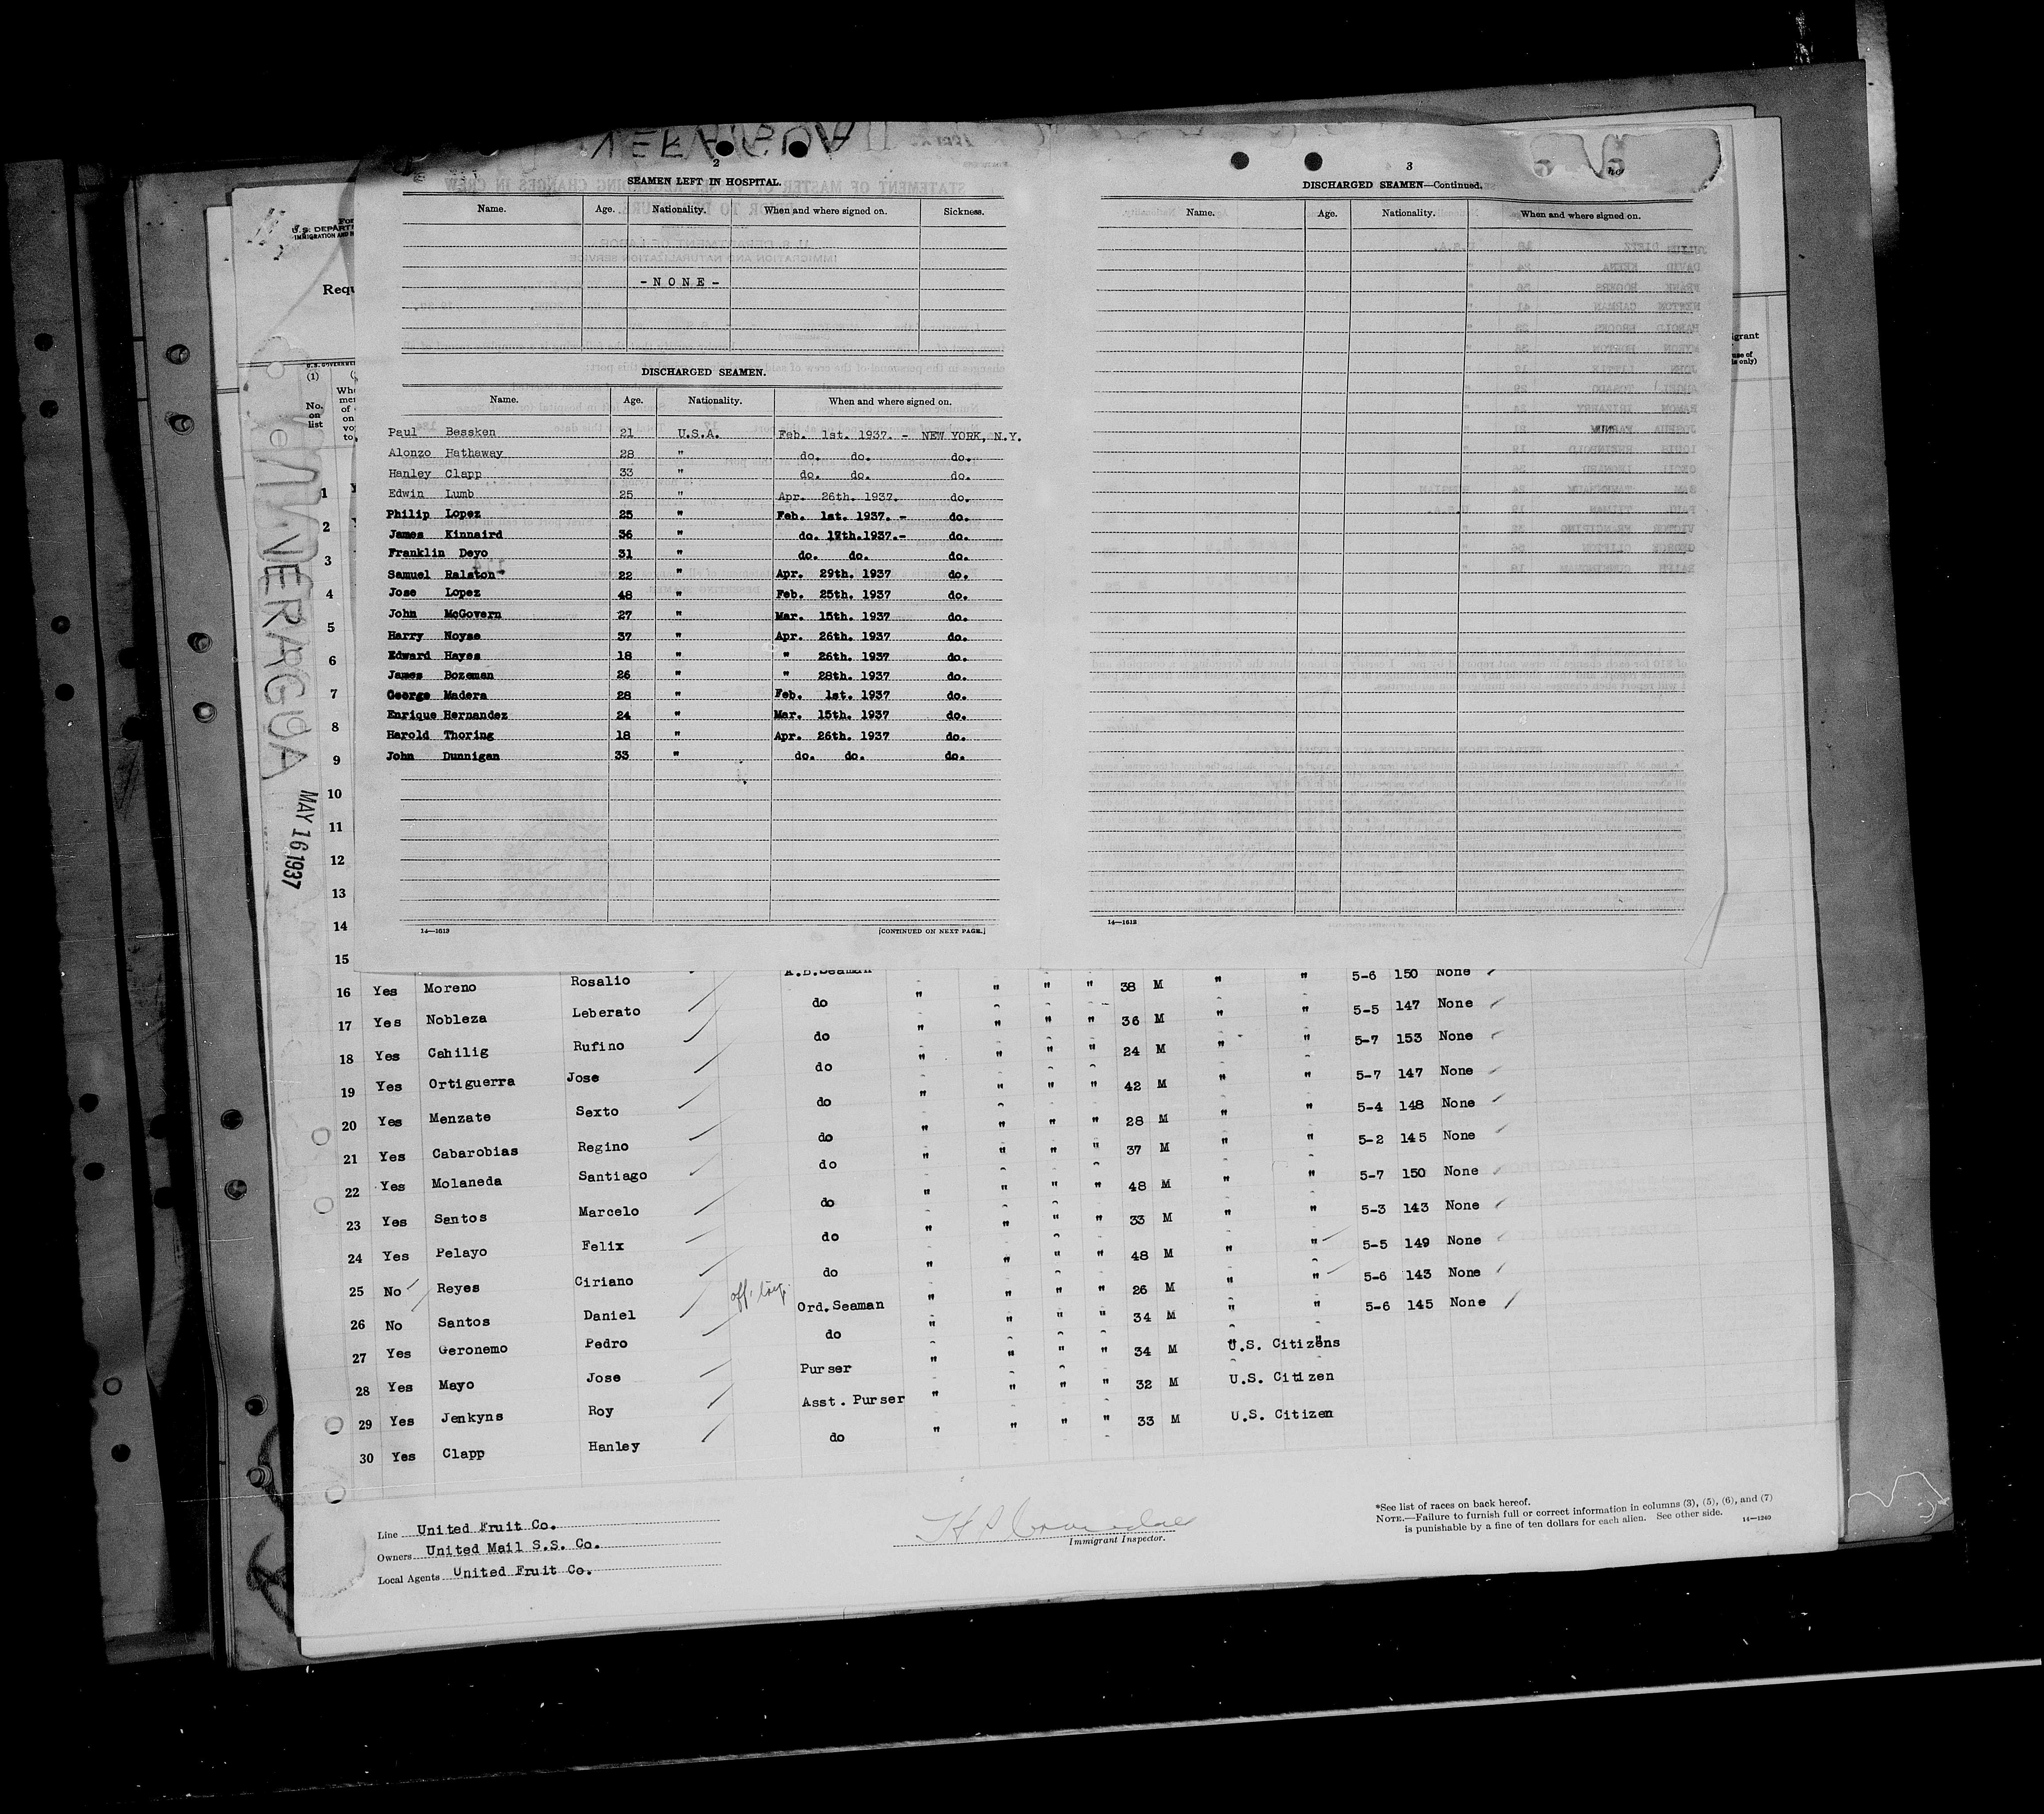 2
SEAMEN LEFT IN HOSPITAL.
Name. Age. Nationality. When and where signed on. Sickness.
- N O N E -
DISCHARGED SEAMEN.
Name. Age. Nationality. When and where signed on.
Paul Bessken 21 U.S.A. Feb. 1st. 1937. - NEW YORK, N.Y.
Alonzo Hathaway 28 " do. do. do.
Hanley Clapp 33 " do. do. do.
Edwin Lumb 25 " Apr. 26th. 1937. do.
Philip Lopez 25 " Feb. 1st. 1937. - do.
James Kinnaird 36 " do. 17th.1937.- do.
Franklin Deyo 31 " do. do. do.
Samuel Ralston 22 " Apr. 29th. 1937 do.
Jose Lopez 48 " Feb. 25th. 1937 do.
John McGovern 27 " Mar. 15th. 1937 do.
Harry Noyse 37 " Apr. 26th. 1937 do.
Edward Hayes 18 " " 26th. 1937 do.
James Bozeman 26 " " 28th. 1937 do.
George Madera 28 " Feb. 1st. 1937 do.
Enrique Hernandez 24 " Mar. 15th. 1937 do.
Harold Thoring 18 " Apr. 26th. 1937 do.
John Dunnigan 33 " do. do. do.
14—1613 [CONTINUED ON NEXT PAGE.]
3
DISCHARGED SEAMEN—Continued.
Name. Age. Nationality. When and where signed on.
14—1613
U.S. DEPART
IMMIGRATION AND
Requ
(1)
No. on list
MAY 16 1937
1
2
3
4
5
6
7
8
9
10
11
12
13
14
15
A.B.Seaman
16 Yes Moreno Rosalio do " " " " 38 M " " 5-6 150 None
17 Yes Nobleza Leberato do " " " " 36 M " " 5-5 147 None
18 Yes Cahilig Rufino do " " " " 24 M " " 5-7 153 None
19 Yes Ortiguerra Jose do " " " " 42 M " " 5-7 147 None
20 Yes Menzate Sexto do " " " " 28 M " " 5-4 148 None
21 Yes Cabarobias Regino do " " " " 37 M " " 5-2 145 None
22 Yes Molaneda Santiago do " " " " 48 M " " 5-7 150 None
23 Yes Santos Marcelo do " " " " 33 M " " 5-3 143 None
24 Yes Pelayo Felix do " " " " 48 M " " 5-5 149 None
25 No Reyes Ciriano Ord.Seaman " " " " 26 M " " 5-6 143 None
26 No Santos Daniel do " " " " 34 M " " 5-6 145 None
27 Yes Geronemo Pedro Purser " " " " 34 M U.S. Citizens
28 Yes Mayo Jose Asst. Purser " " " " 32 M U.S. Citizen
29 Yes Jenkyns Roy do " " " " 33 M U.S. Citizen
30 Yes Clapp Hanley
Line United Fruit Co.
Owners United Mail S.S. Co.
Local Agents United Fruit Co.
Immigrant Inspector.
*See list of races on back hereof.
NOTE.—Failure to furnish full or correct information in columns (3), (5), (6), and (7)
is punishable by a fine of ten dollars for each alien. See other side. 14—1240